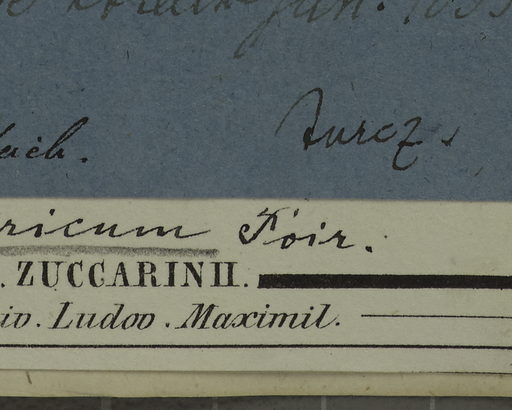 Jan. 1833
Turcz.
ricum Poir.
. ZUCCARINII.
iv. Ludov. Maximil.